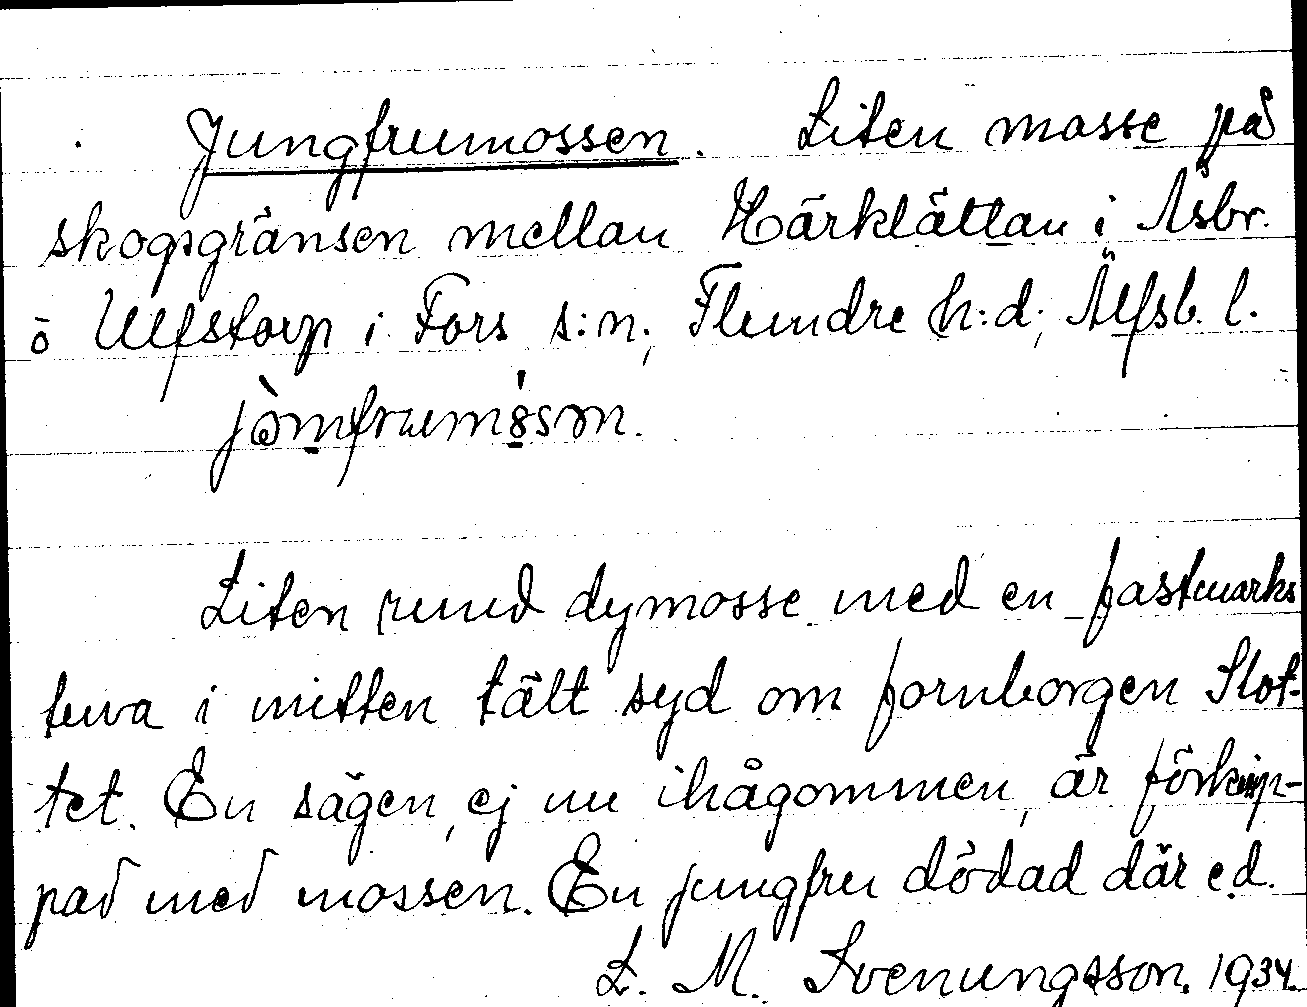 Jungfrumossen. Liten mosse på
skogsgränsen mellan Härklättan i Åsbr.
o Ulfstorp i Fors s:n, Flundre h:d, Älfsb. l.
jòmfrumósən.
Liten rund dymosse med en fastmarks
tuva i mitten tält syd om fornborgen Slot-
tet. En sägen, ej nu ihågommen, är förknip-
pad med mossen. En jungfru dödad där e.d.
L. M. Svenungsson. 1934.